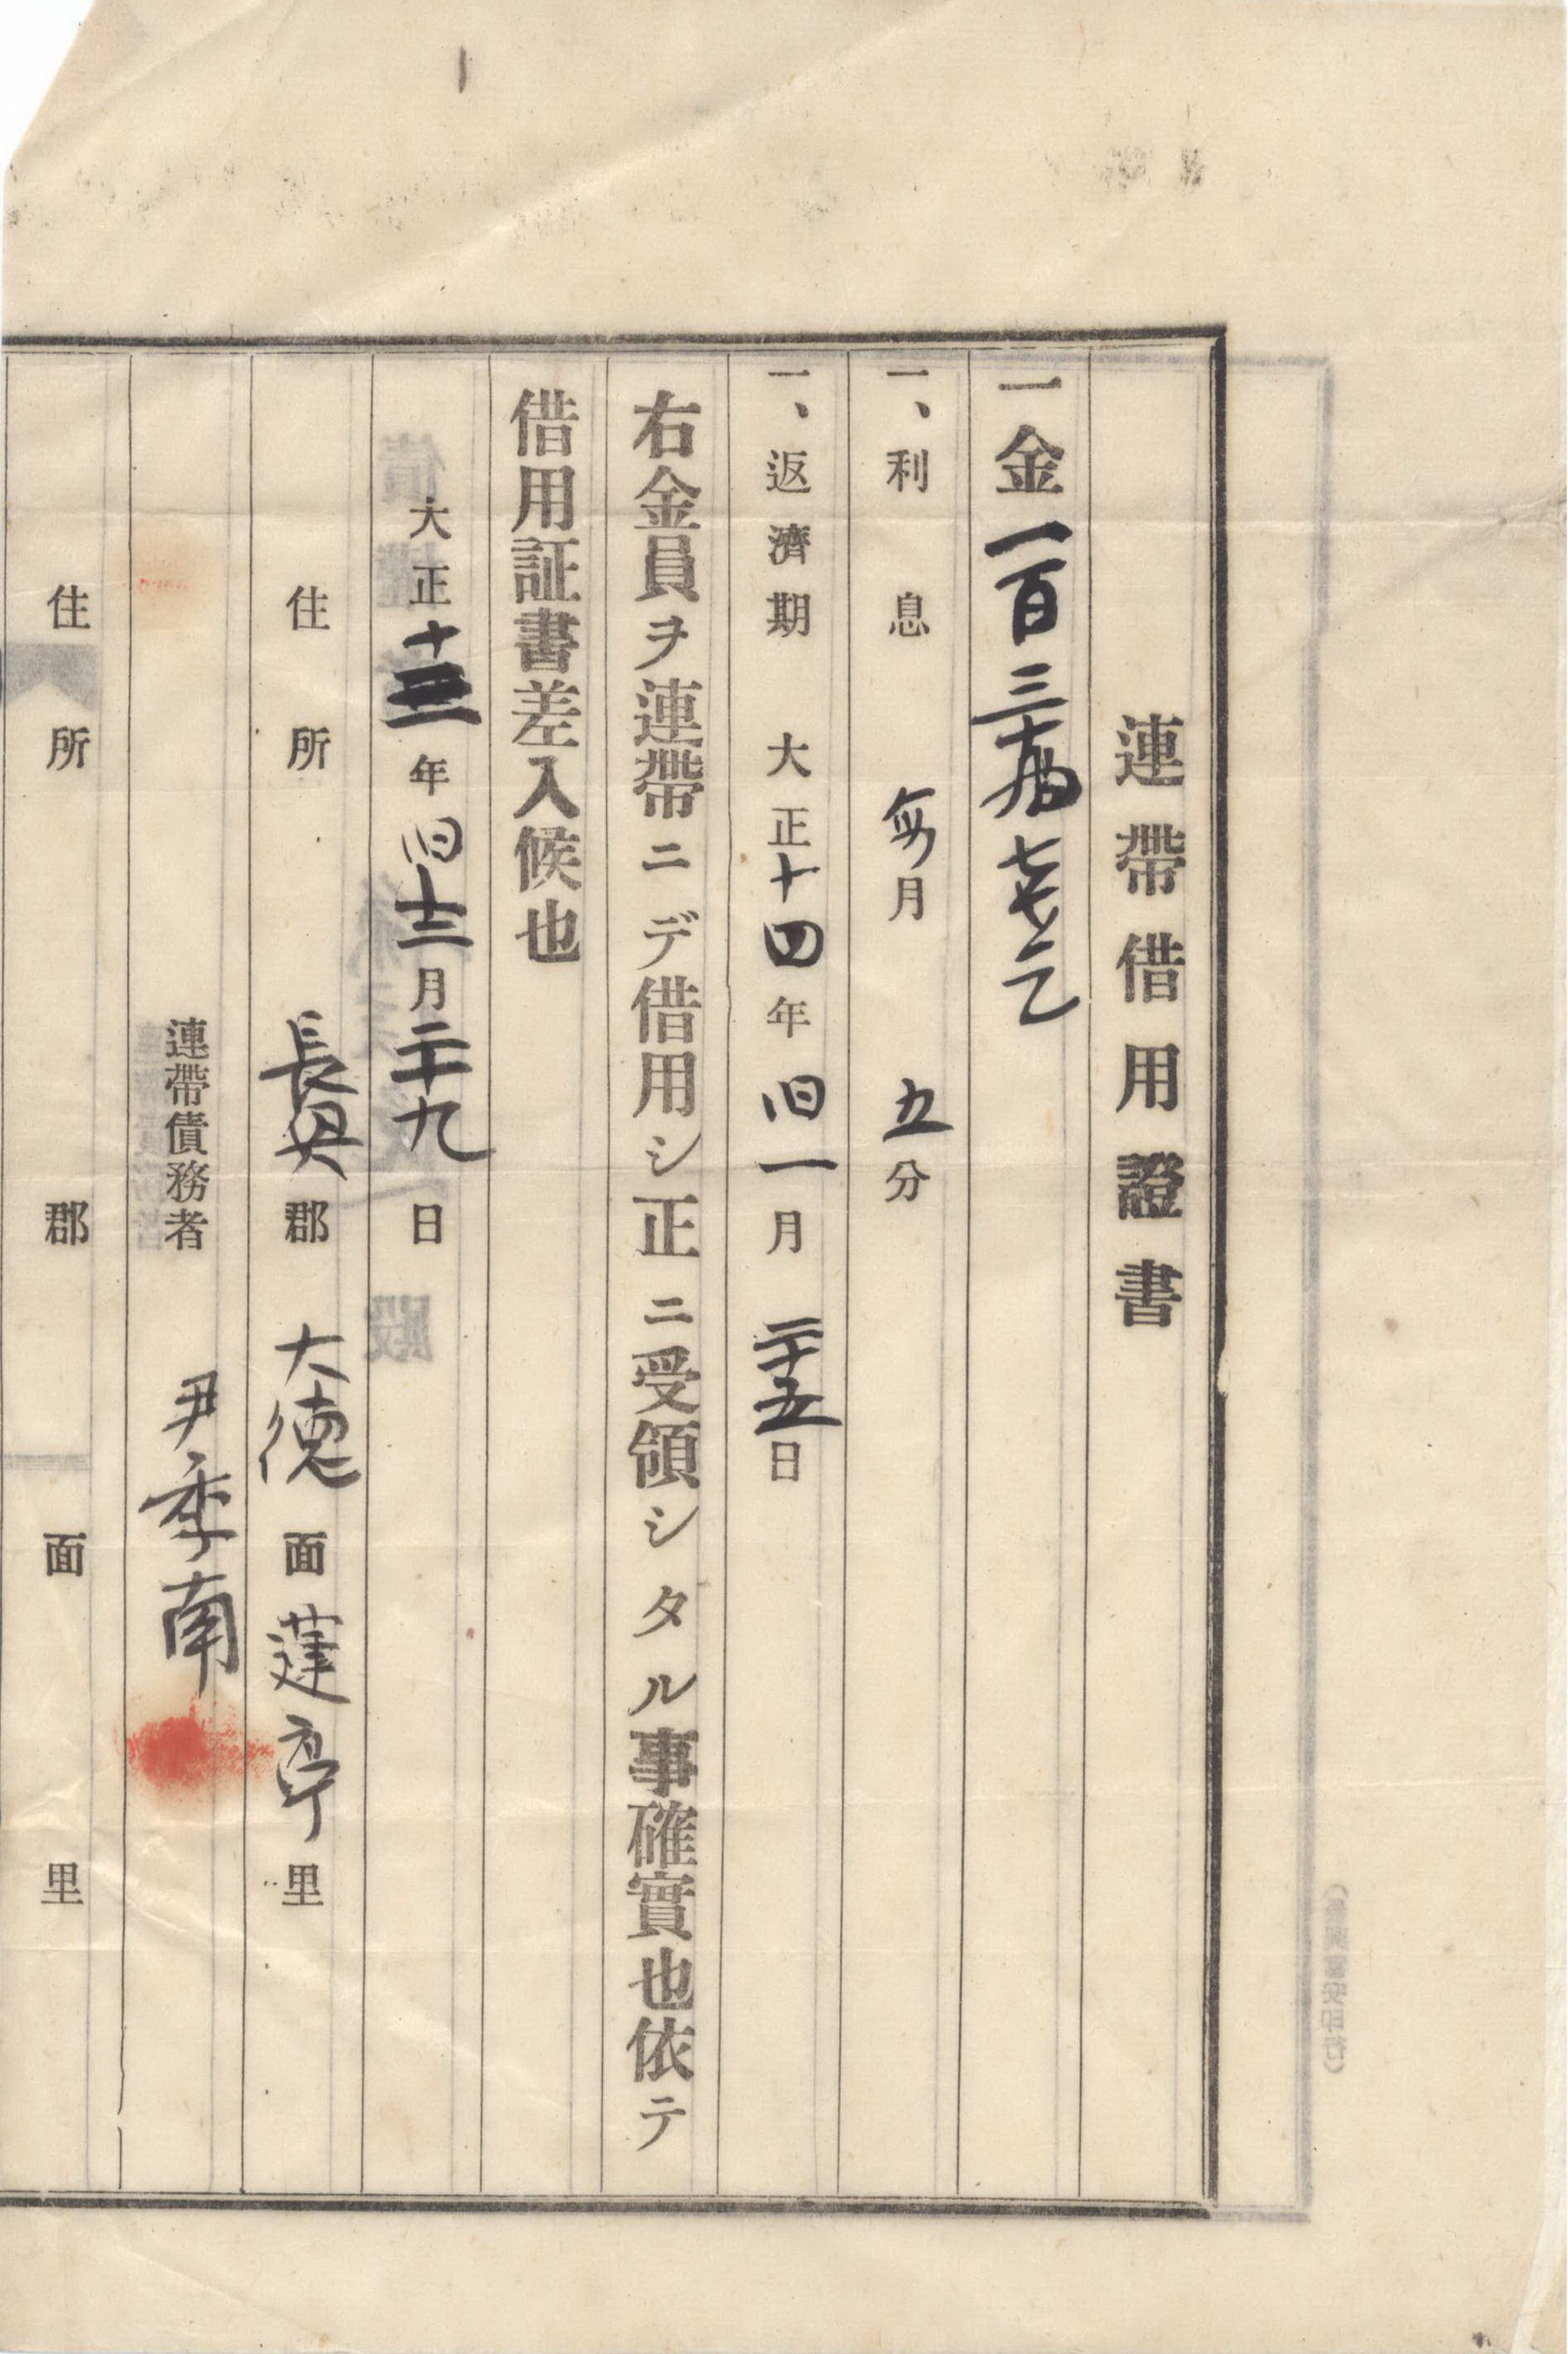 連帶借用證書
一金一百三十九
一、利息 每月 五分
一、返濟期 大正十四年旧一月二十五日
右金員ヲ連帶ニデ借用シ正ニ受領シタル事確實也依テ
借用証書差入候也
大正十三年旧十二月二十九日
住所 長興郡 大德面蓮亭里
連帶債務者 尹季南
住所 郡 面 里